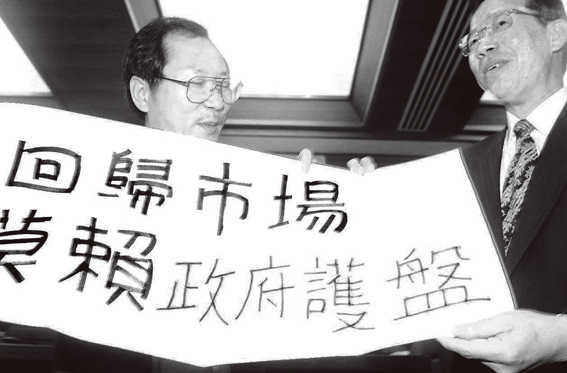 回歸市場
莫賴政府護盤